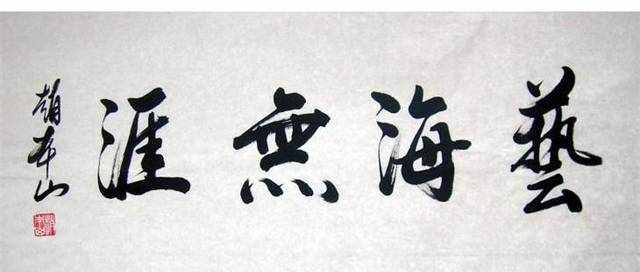 藝海無涯
趙本山